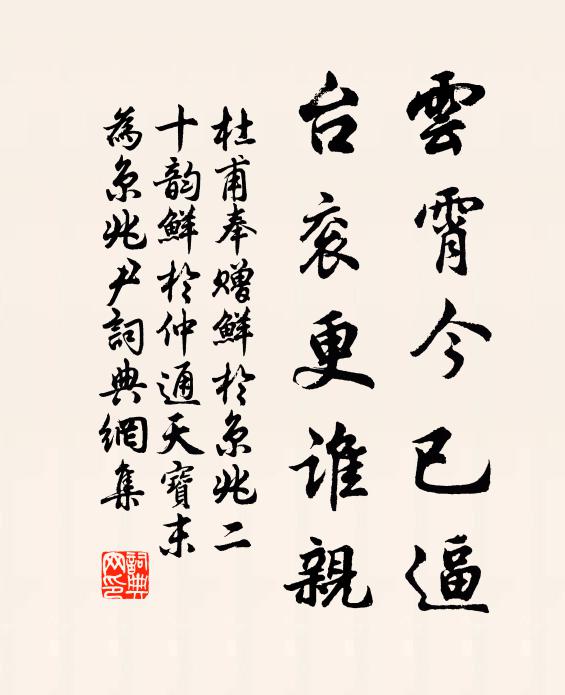 雲霄今已逼
台衮更誰親
杜甫奉贈鮮於京兆二
十韵鮮於仲通天寶末
為京兆尹詞典網集
詞典網印